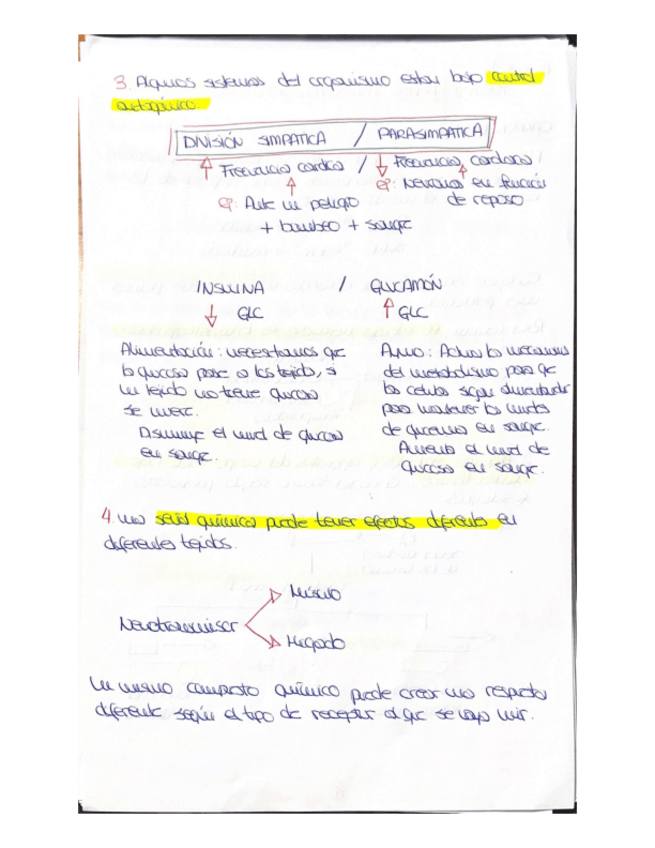 3. Algunos sistemas del organismo estan bajo control
antagónico.
DIVISIÓN SIMPATICA / PARASIMPATICA
↑ Frecuencia cardica / ↓ Frecuencia cardiaca
ej: Ante un peligro
+ bombeo + sangre
ej: Neuronas en función
de reposo
INSULINA / GLUCAGÓN
↓ GLC ↑ GLC
Alimentación: necesitamos que
la glucosa pase a los tejidos, si
un tejido no tiene glucosa
se muere.
Disminuye el nivel de glucosa
en sangre.
Ayuno: Activa los mecanismos
del metabolismo para que
las celulas sigan alimentandose
para mantener los niveles
de glucemia en sangre.
Aumenta el nivel de
glucosa en sangre.
4. Una señal química puede tener efectos diferentes en
diferentes tejidos.
Neurotransmisor
Músculo
Higado
Un mismo compuesto químico puede crear una respuesta
diferente según el tipo de receptor al que se vaya unir.